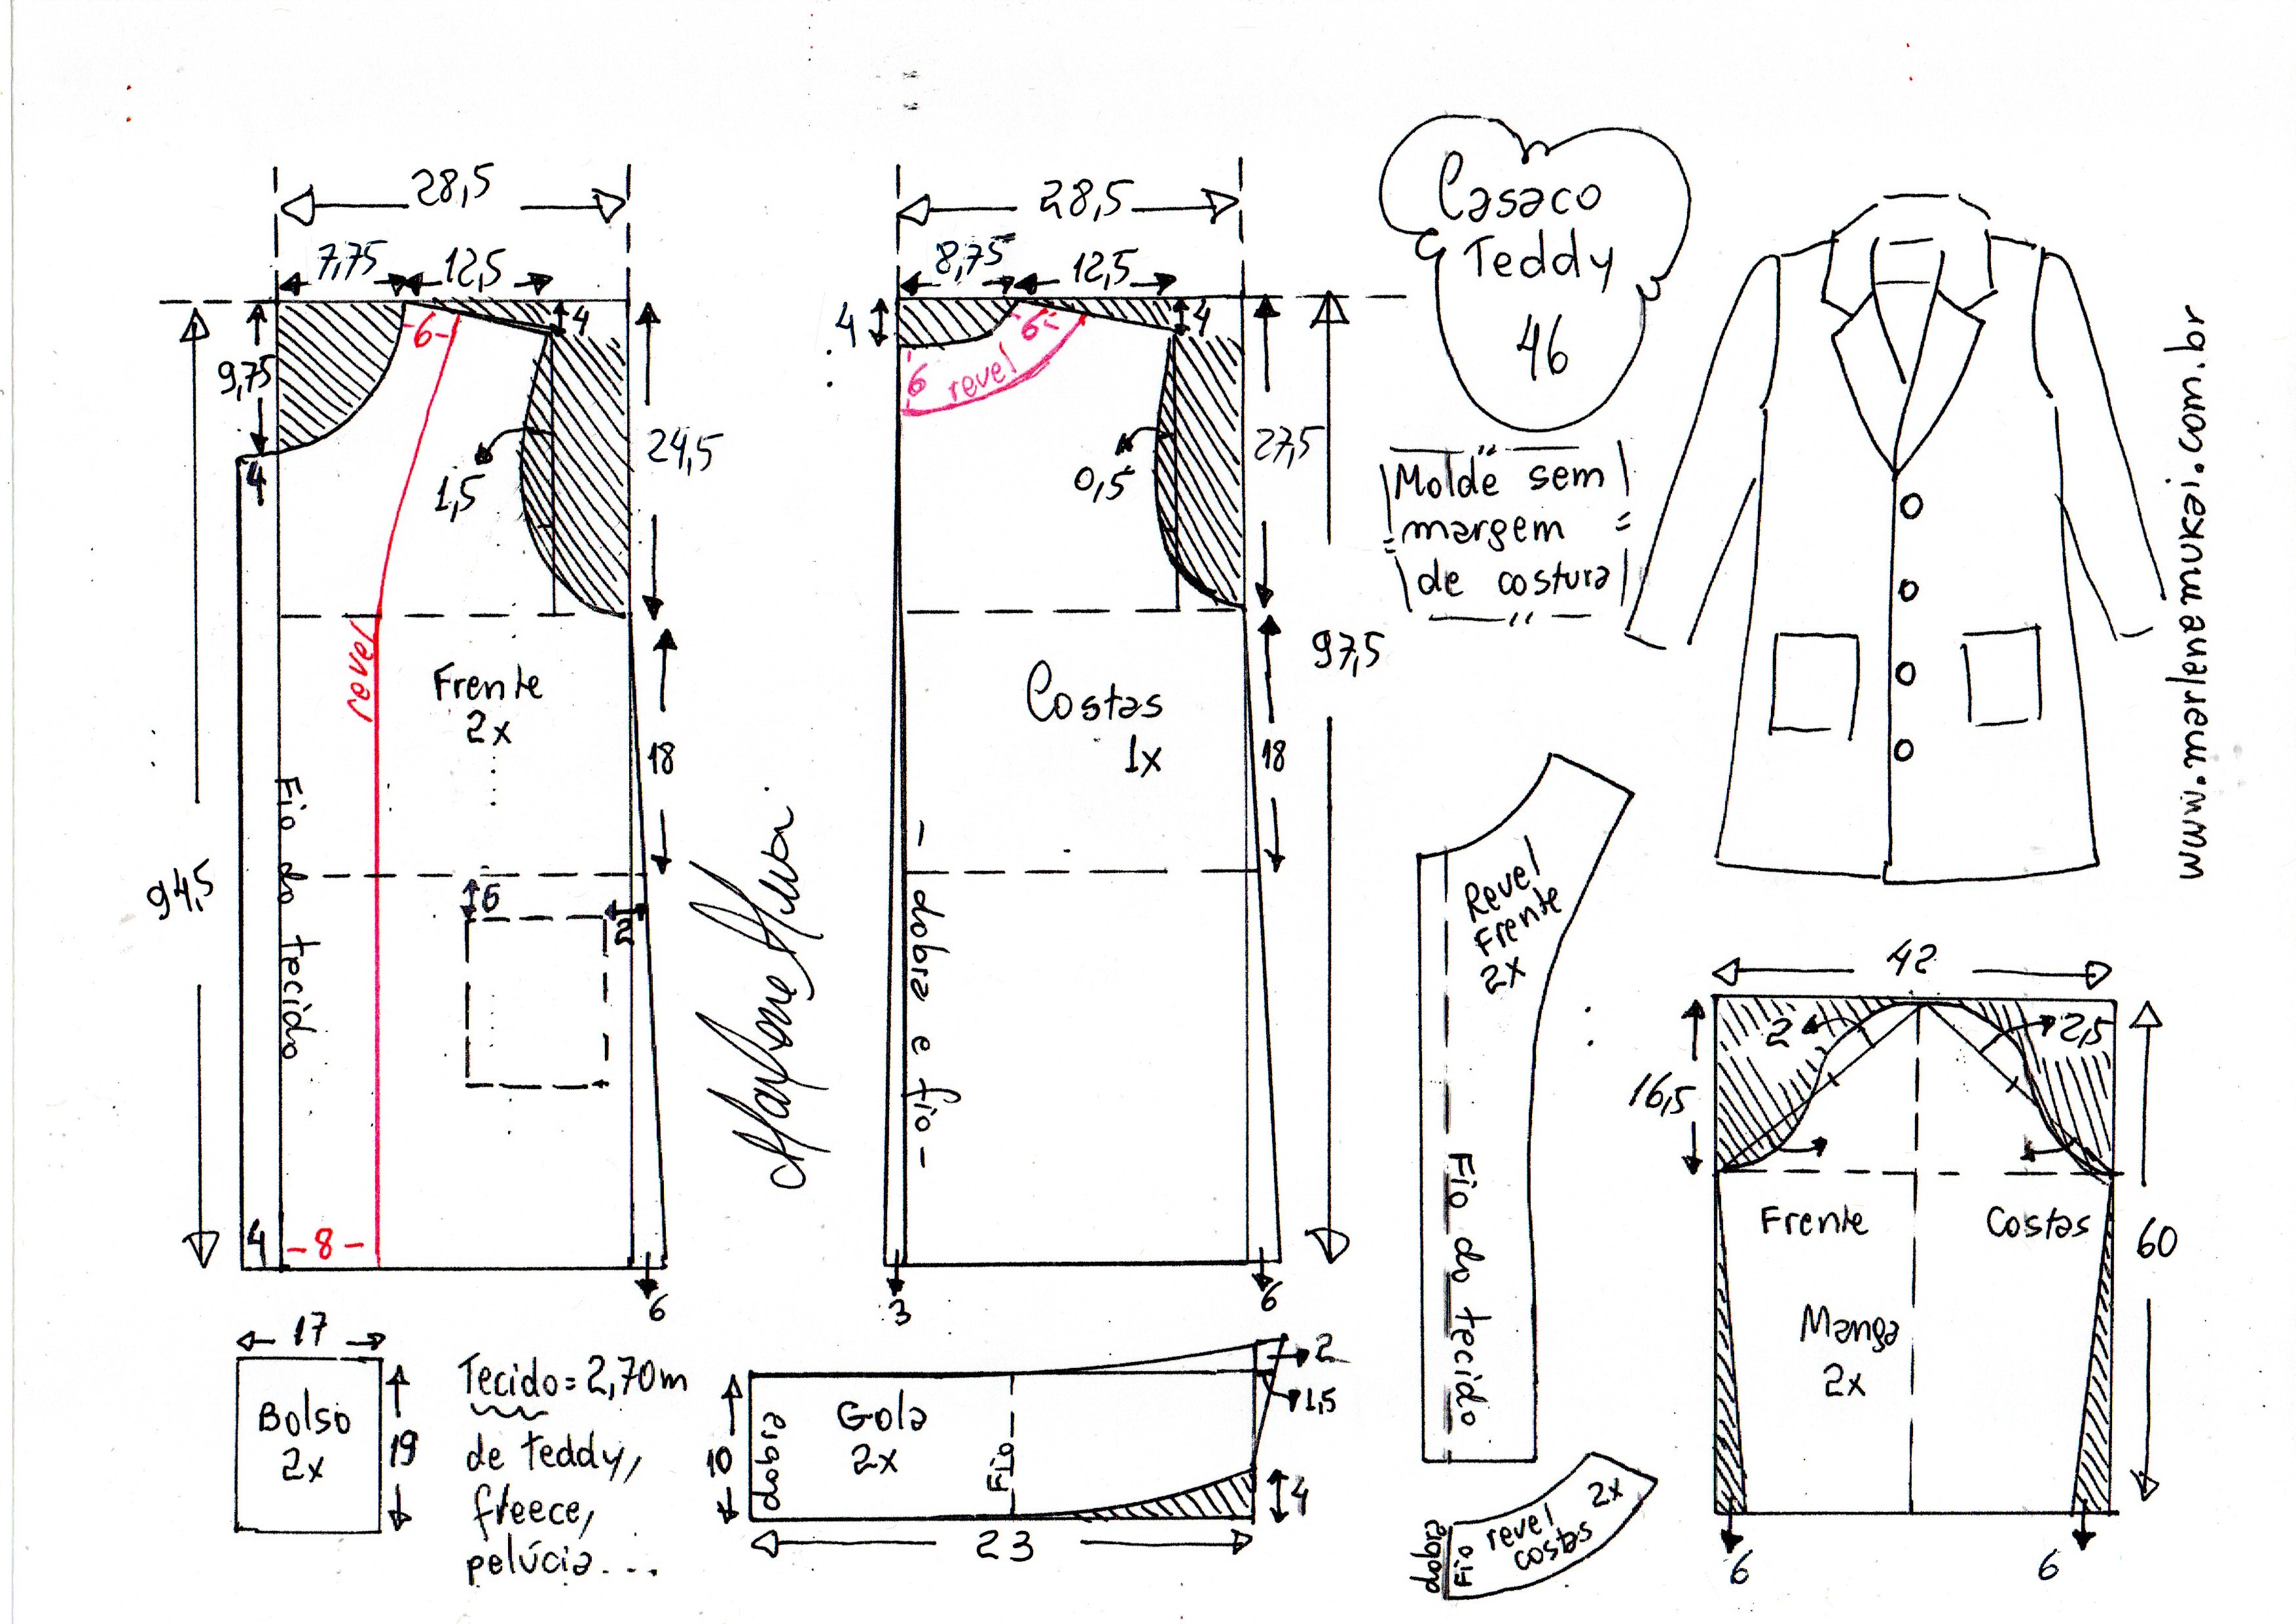 28,5
7,75
12,5
4
-6-
9,75
4
24,5
1,5
Frente
2x
revel
18
94,5
Fio do tecido
6
2
4
-8-
6
28,5
8,75
12,5
4
4
6
6
revel
0,5
27,5
Costas
1x
18
97,5
- dobra e fio -
3
6
Marlene Mukai
Casaco
Teddy
46
Molde sem
margem
de costura
www.marlenemukai.com.br
Revel
Frente
2x
Fio do tecido
42
2
2,5
16,5
Frente
Costas
60
Manga
2x
6
6
17
Bolso
2x
19
Tecido = 2,70m
de teddy,
freece,
pelúcia...
10
dobra
Gola
2x
Fio
2
1,5
4
23
dobra
Fio
revel
costas
2x